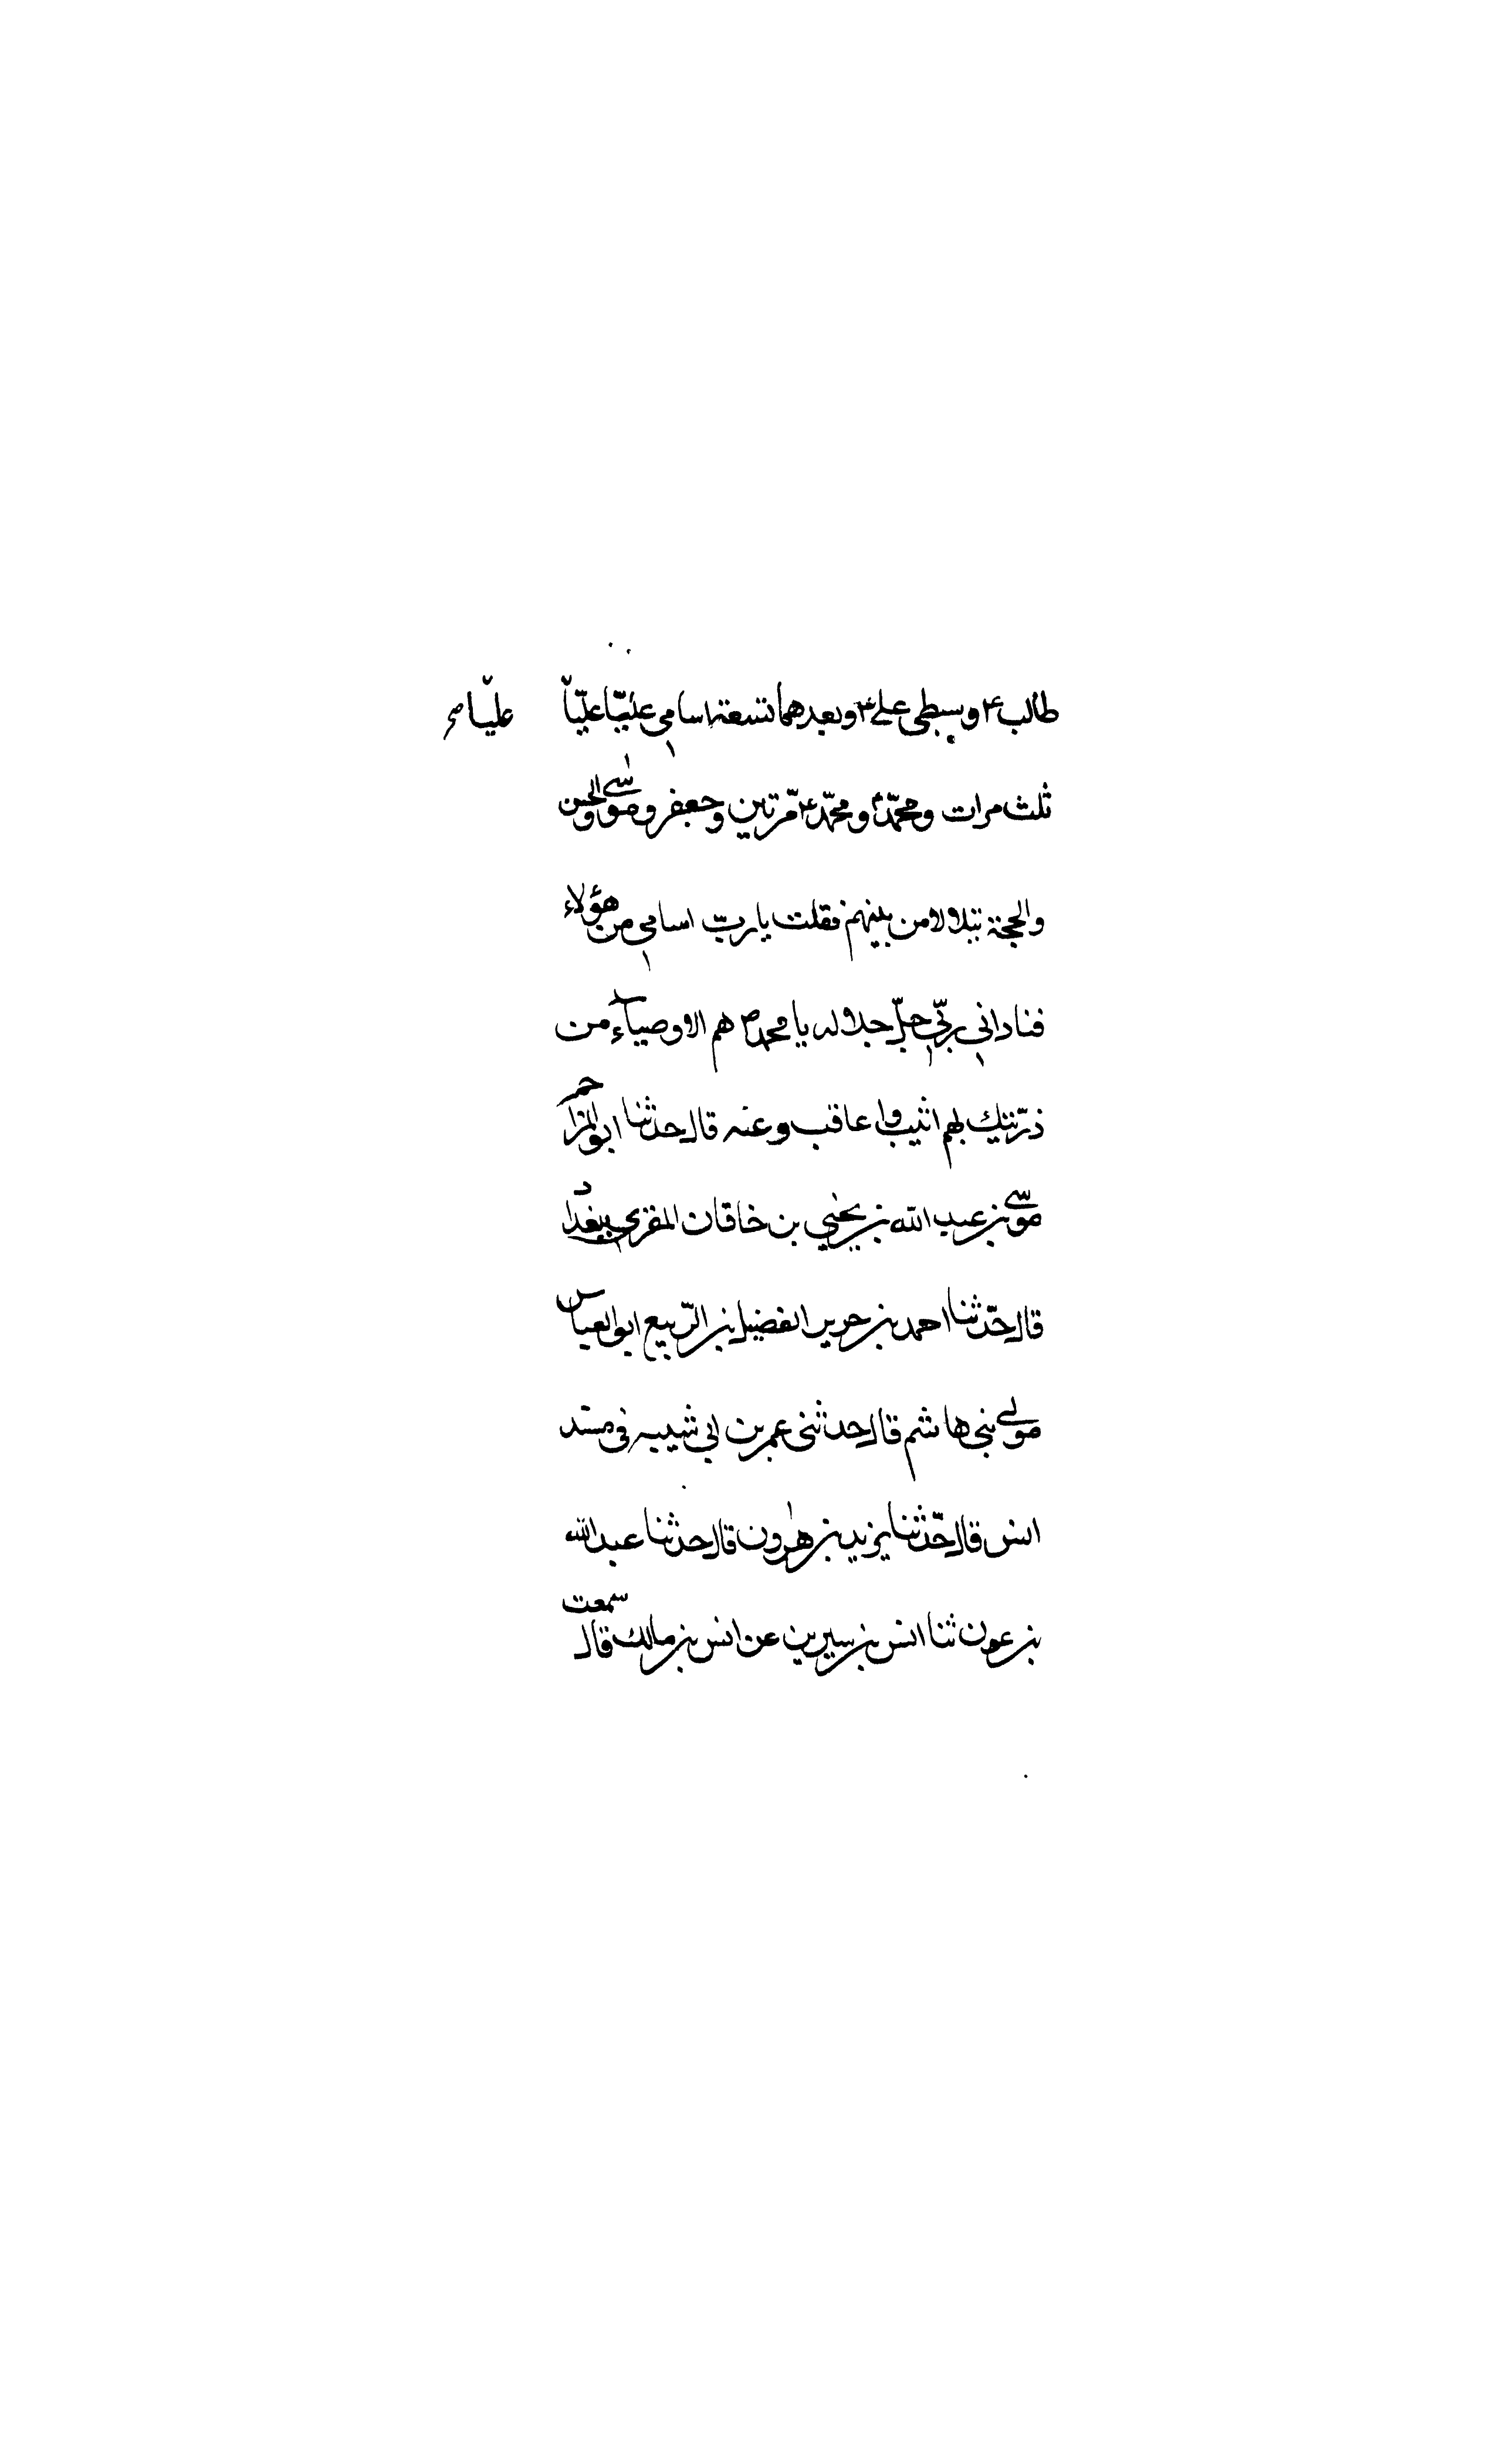 طالب ع وسبطى على ع وبعدهما تسعة اسامى عليّا عليّا عليّا صح
ثلث مرات ومحمّد ع ومحمّد ع مرّتين وجعفر وموسى والحسن
والحجة يتلالا من بينهم فقلت يا ربّ اسامى من هؤلاء
فنادانى ربّى جلّ جلاله يا محمد ص هم الاوصياء من
ذرّيتك بهم اثيب واعاقب وعنه قال حدثنا ابو المزاحم
موسى بن عبد الله بن يحيى بن خاقان المقرى ببغداد
قال حدّثنا احمد بن جرير الفضيل بن الرّبيع ابو العباس
مولى بنى هاشم قال حدثنى عمر بن ابى شيبه فى مسند
انس قال حدّثنا يزيد بن هرون قال حدثنا عبد الله
بن عون ثنا انس بن سيرين عن انس بن مالك قال سمعت